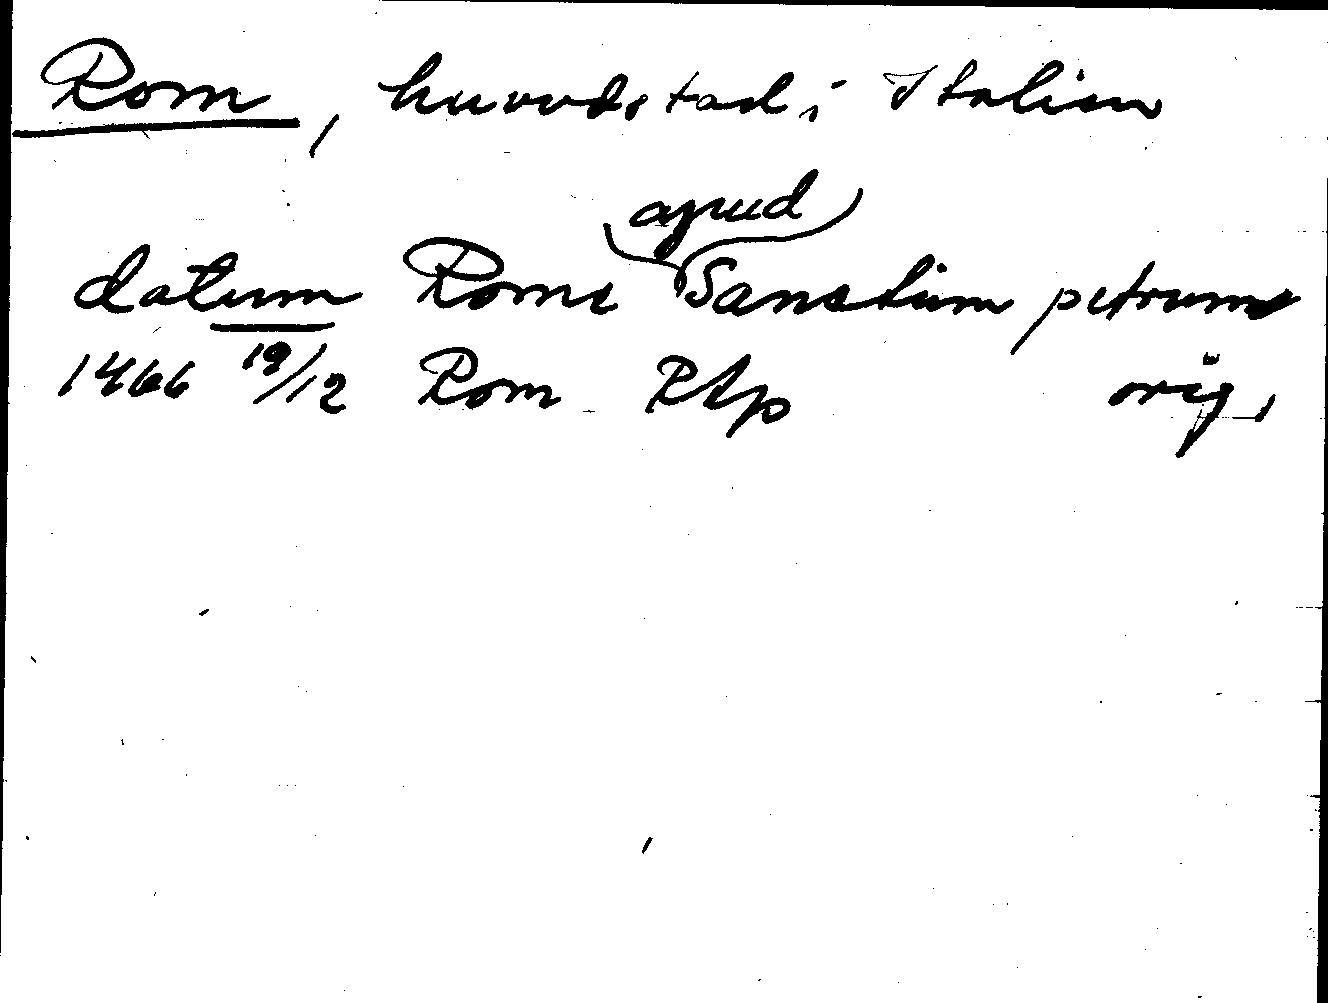 Rom, huvudstad i Italien
datum Rome apud Sanctum petrum
1466 19/12 Rom RAp orig.